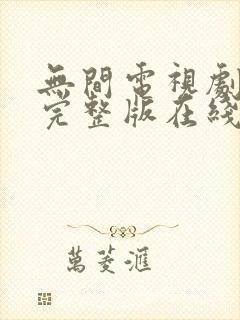 無間電視劇
完整版在綫
萬菱滙